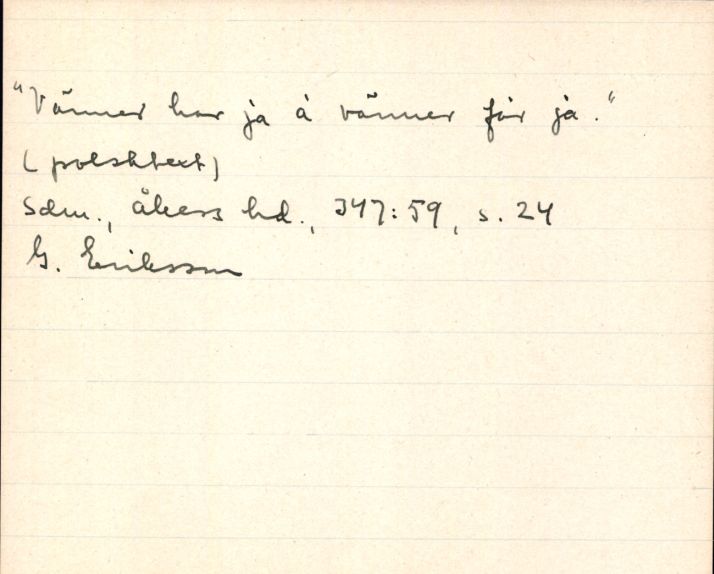 "Vänner har ja å vänner får ja."
(polsktext)
Sdm., Åkers hd., 347:59, s. 24
G. Eriksson